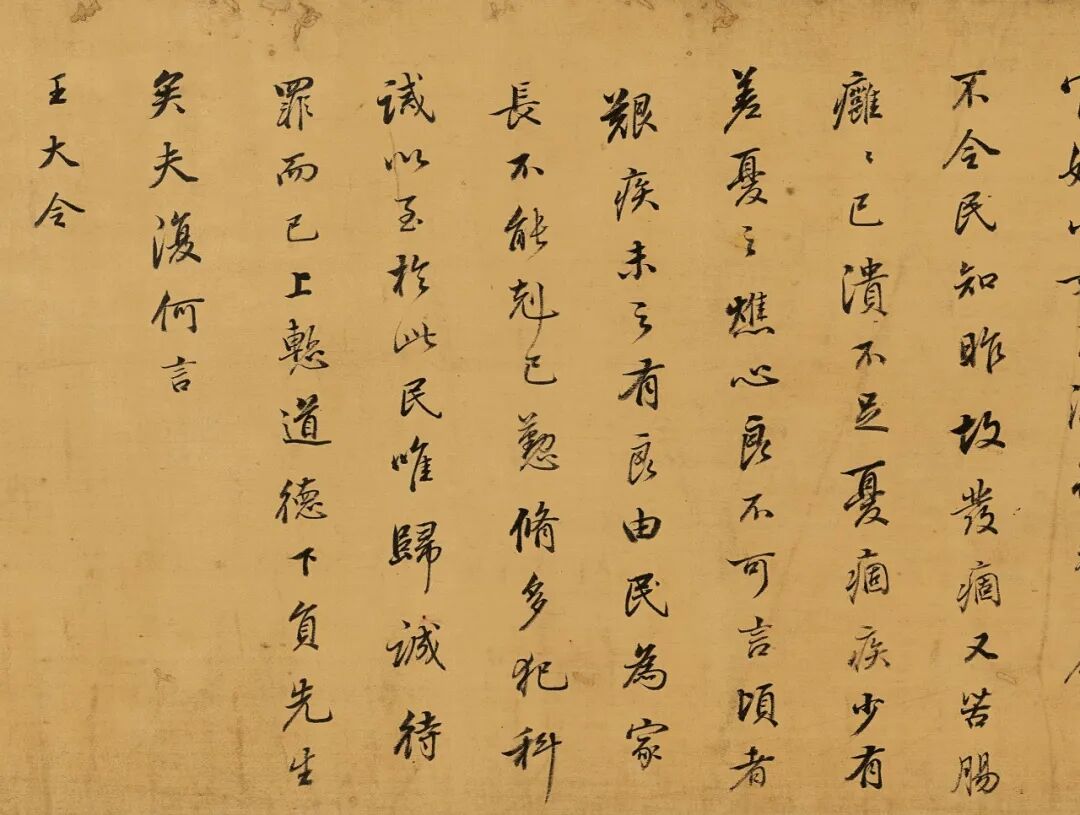 不令民知昨故發痼又苦腸
癰〻已潰不足憂痼疾少有
差憂之燋心良不可言頃者
艱疾未之有良由民為家
長不能剋己懃脩多犯科
誡以至於此民唯歸誠待
罪而已上慙道德下負先生
矣夫復何言
王大令